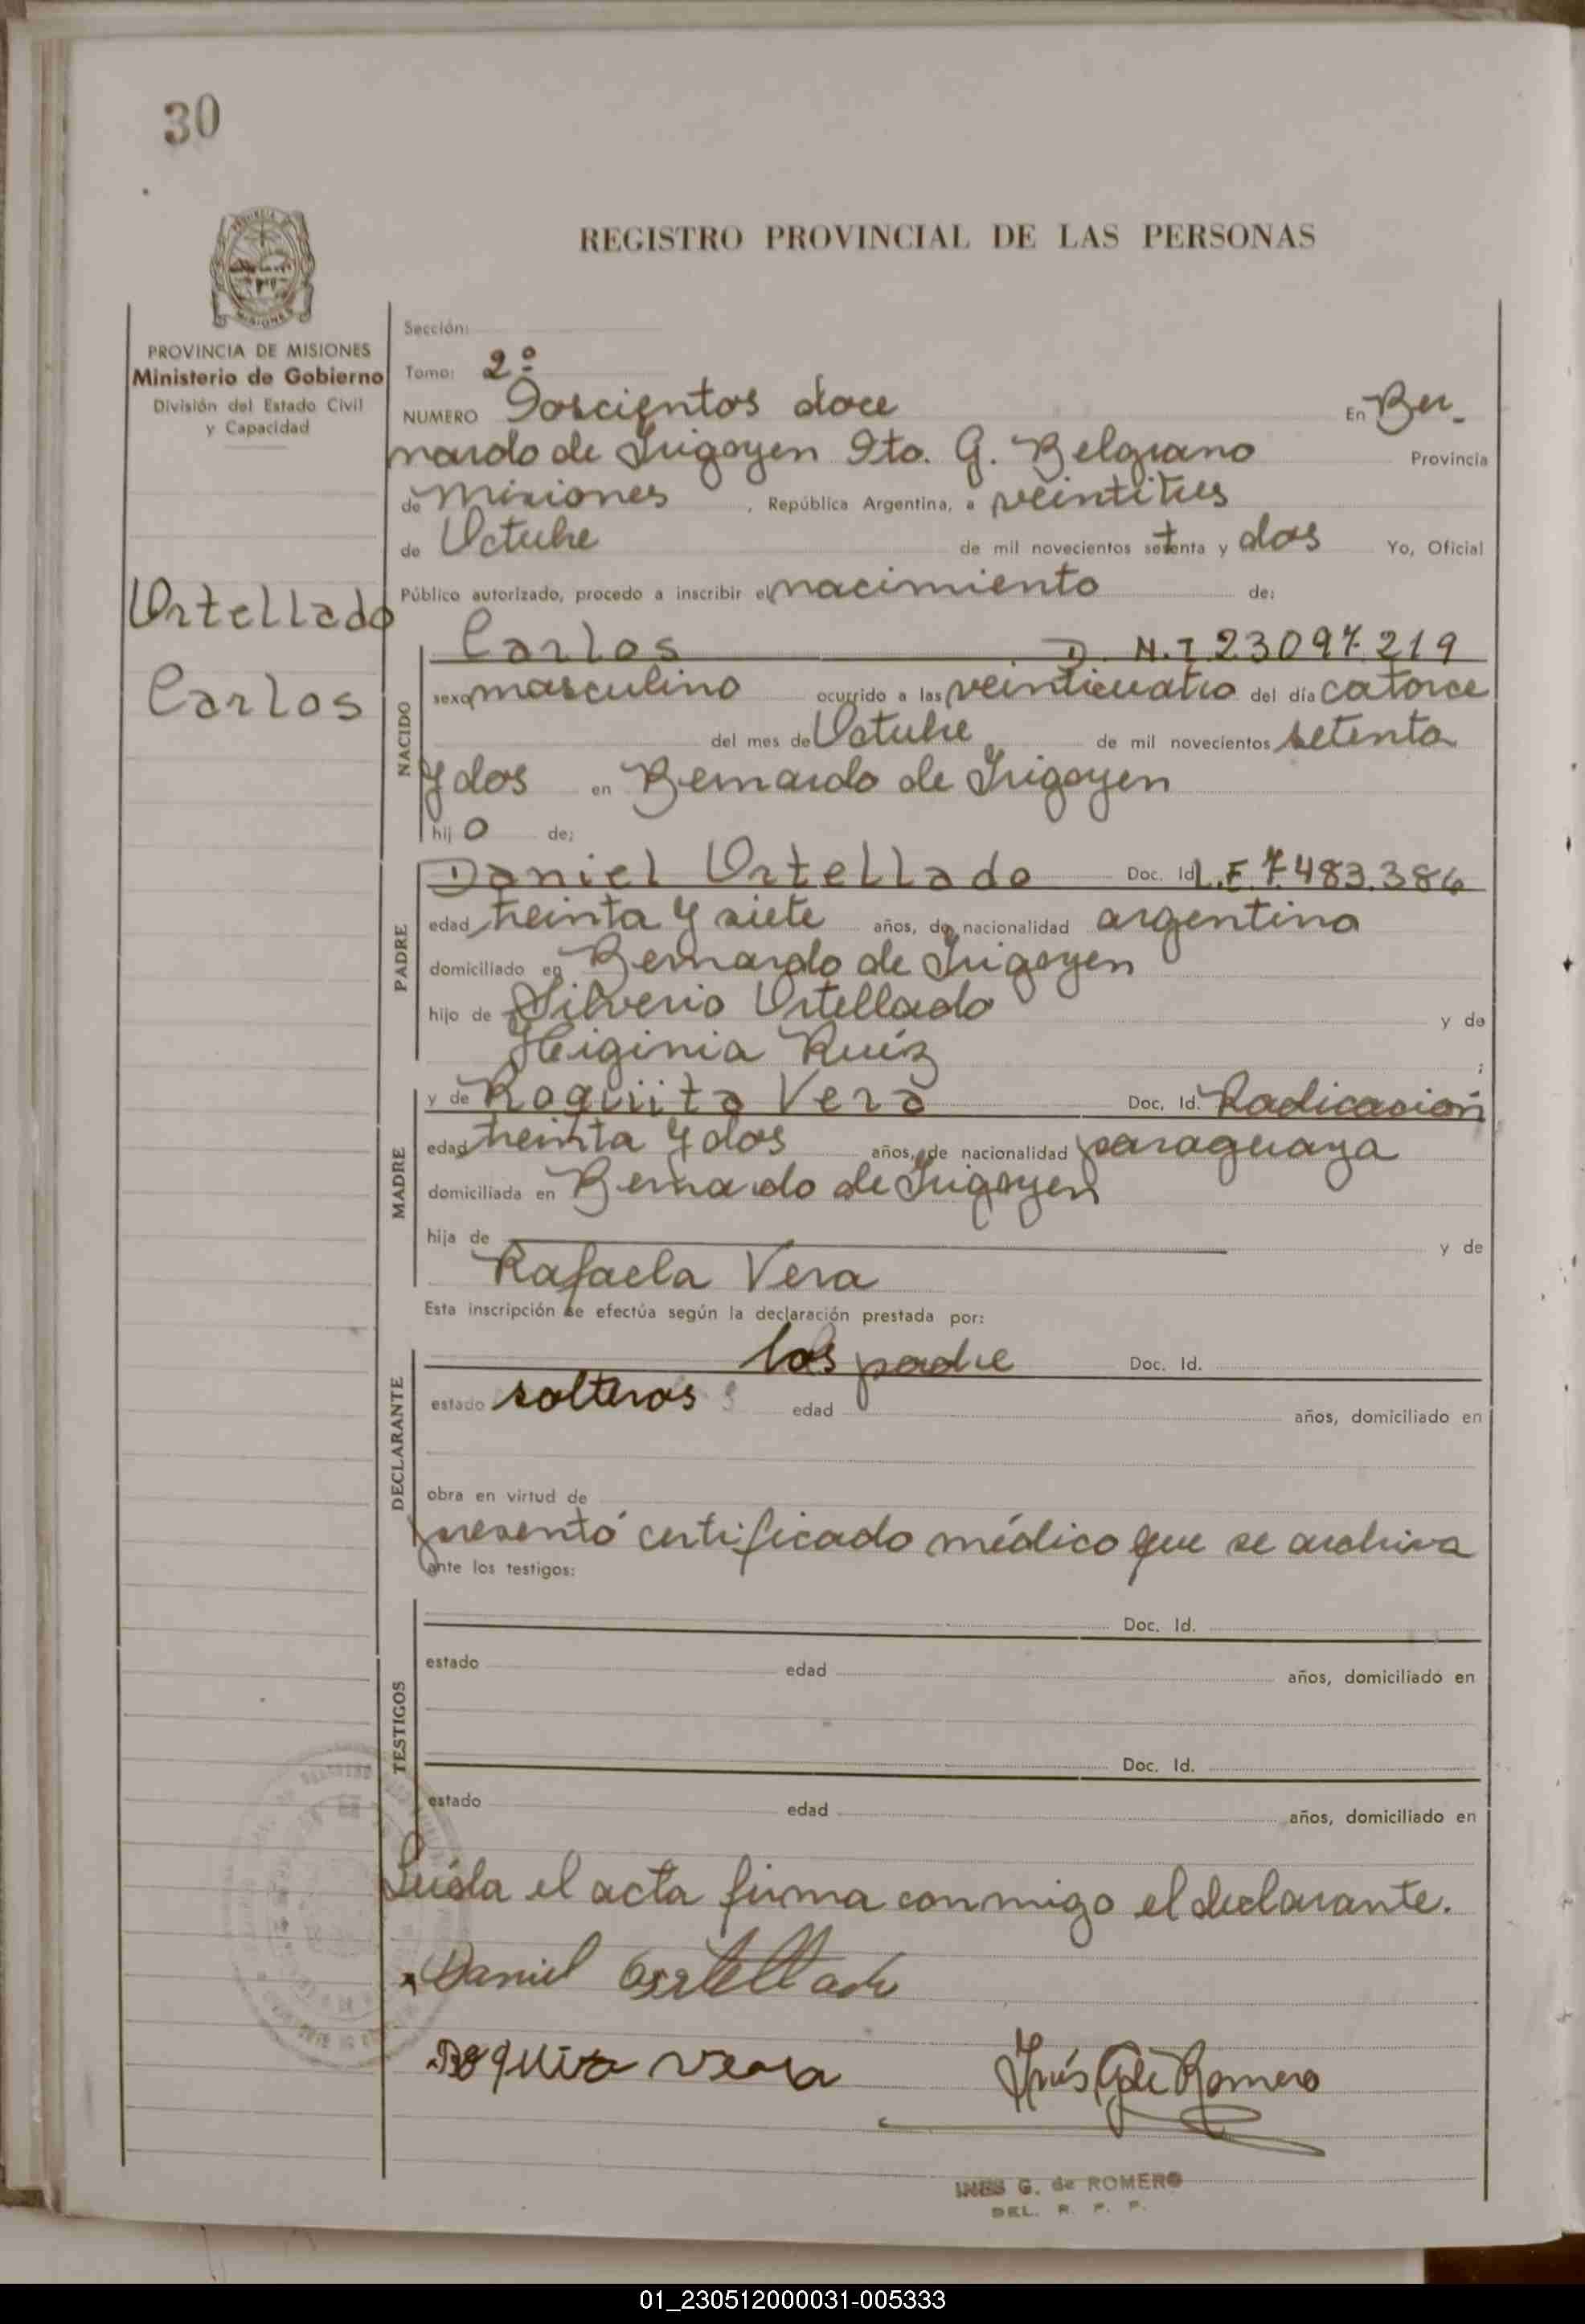 30
REGISTRO PROVINCIAL DE LAS PERSONAS
MISIONES
PROVINCIA DE MISIONES
Ministerio de Gobierno
División del Estado Civil
y Capacidad
Ortellado
Carlos
Sección:
Tomo: 2º
NUMERO Doscientos doce En Ber-
nardo de Irigoyen Dto. G. Belgrano Provincia
de Misiones, República Argentina, a veintitres
de Octubre de mil novecientos setenta y dos Yo, Oficial
Público autorizado, procedo a inscribir el nacimiento de:
NACIDO
Carlos D.N.I 23097.219
sexo masculino ocurrido a las veinticuatro del día catorce
del mes de Octubre de mil novecientos setenta
y dos en Bernardo de Irigoyen
hijo de:
PADRE
Daniel Ortellado Doc. Id. L.E 7.483.386
edad treinta y siete años, de nacionalidad argentina
domiciliado en Bernardo de Irigoyen
hijo de Silverio Ortellado y de
Higinia Ruíz ;
MADRE
y de Roqüita Vera Doc. Id. Radicasión
edad treinta y dos años, de nacionalidad paraguaya
domiciliada en Bernardo de Irigoyen
hija de y de
Rafaela Vera
Esta inscripción se efectúa según la declaración prestada por:
DECLARANTE
los padre Doc. Id.
estado solteros edad años, domiciliado en
obra en virtud de
presentó certificado médico que se archiva
ante los testigos:
TESTIGOS
Doc. Id.
estado edad años, domiciliado en
Doc. Id.
estado edad años, domiciliado en
Leída el acta firma conmigo el declarante.
Daniel Ortellado
Roquita Vera
Inés G de Romero
INES G. de ROMERO
DEL. R. P. P.
01_230512000031-005333